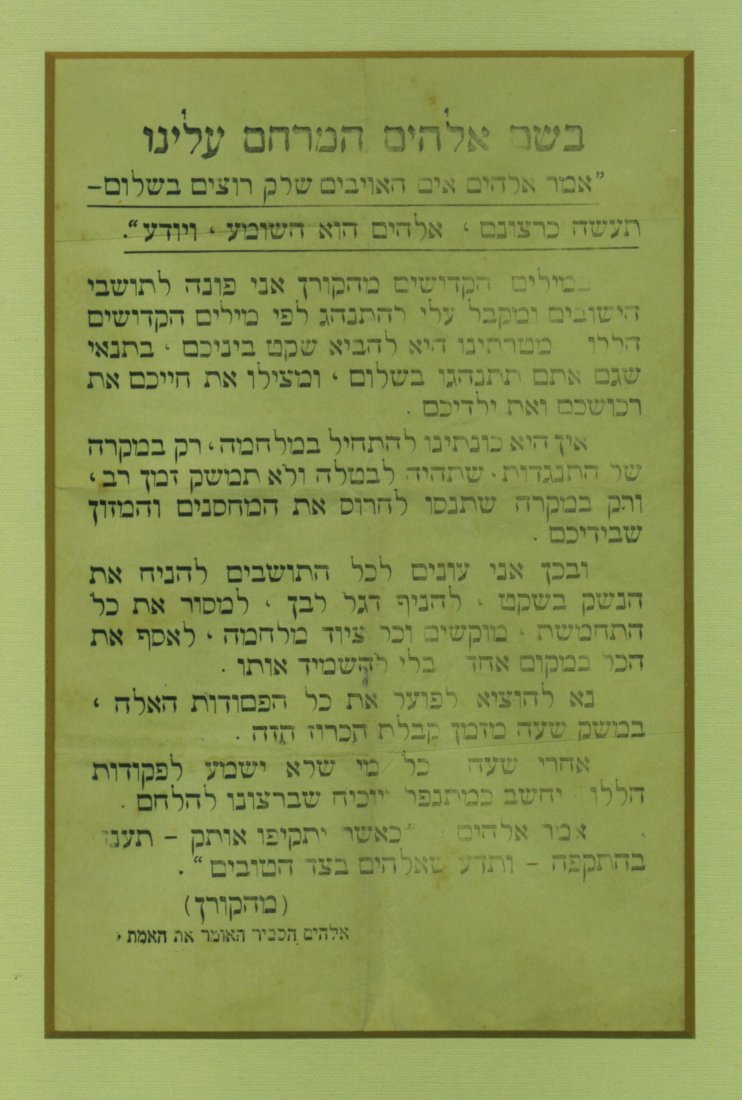 בשם אלהים המרחם עלינו
"אמר אלהים אים האויבים שלק רוצים בשלום–
תעשה כרצונם, אלהים הוא השומע, ויודע".
במילים הקדושים מהקורך אני פונה לתושבי
הישובים ומקבל עלי להתנהג לפי מילים הקדושים
הללו מטרתינו היא להביא שקט ביניכם, בתנאי
שגם אתם תתנהגו בשלום, ומצילו את חייכם את
רכושכם ואת ילדיכם.
איך היא כונתינו להתחיל במלחמה, רק במקרה
של התנגדות, שתהיה לבטלה ולא תמשק זמך רב,
ורק במקרה שתנסו להרוס את המחסנים והמזוך
שבידיכם.
ובכך אני עונים לכל התושבים להניח את
הנשק בשקט, להניף דגל לבך, למסור את כל
התחמשת, מוקשים וכר ציוד מלחמה, לאסף את
הכל במקום אחד בלי להשמיד אותו.
נא להוציא לפוער את כל הפסודות האלה,
במשק שעה מזמך קבלת הכרוז הזה.
אחרי שעה כל מי שלא ישמע לפקודות
הללו יחשב כמתנפר יוכיח שברצונו להלחם.
אמר אלהים "כאשר יתקיפו אותק – תענה
בהתקפה – ותדע שאלהים בצד הטובים".
(מהקורך)
אלהים הכביר האומר את האמת.